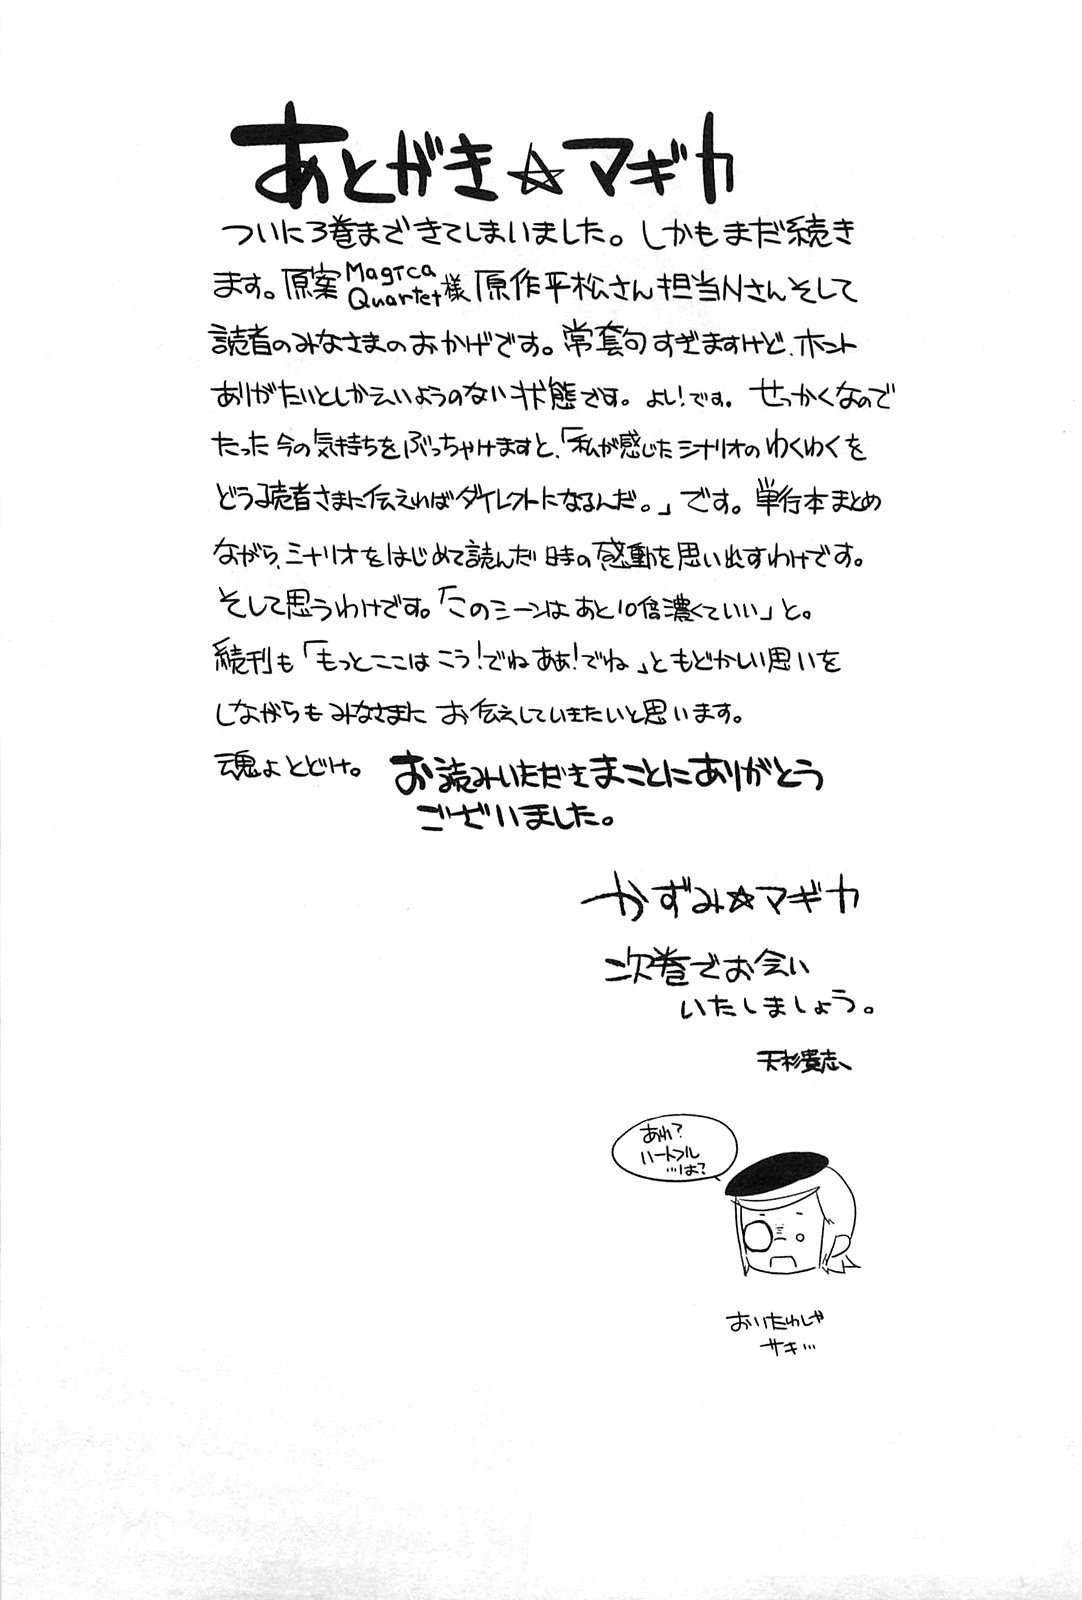 あとがき☆マギカ
ついに3巻まできてしまいました。しかもまだ続き
ます。原案Magica Quartet様原作平松さん担当Nさんそして
読者のみなさまのおかげです。常套句すぎますけど、ホント
ありがたいとしかえいようのない状態です。よし!です。せっかくなので
たった今の気持ちをぶっちゃけますと、「私が感じたシナリオのわくわくを
どう読者さまに伝えればダイレクトになるんだ。」です。単行本まとめ
ながら、シナリオをはじめて読んだ時の感動を思い出すわけです。
そして思うわけです。「このシーンはあと10倍濃くていい」と。
続刊も「もっとここはこう!でねああ!でね」ともどかしい思いを
しながらもみなさまにお伝えしていきたいと思います。
魂よとどけ。お読みいただきまことにありがとう
ございました。
かずみ☆マギカ
次巻でお会い
いたしましょう。
天杉貴志
あれ?
ハートフル
…は?
おいたわしや
サキ…